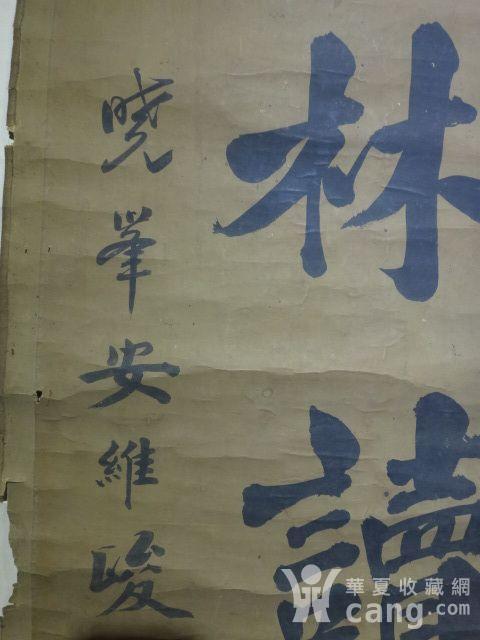 林讀
曉峯安維峻
華夏收藏網
cang.com